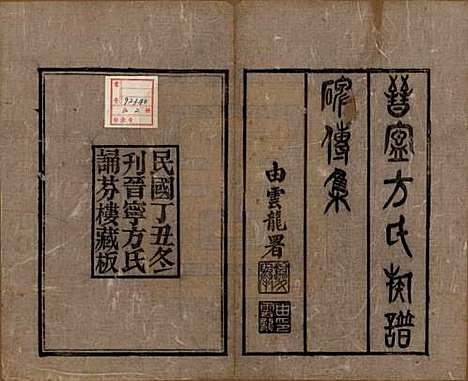 晉寧方氏族譜
碑傳集
由雲龍署
民國丁丑冬
刊晉寧方氏
誦芬樓藏板